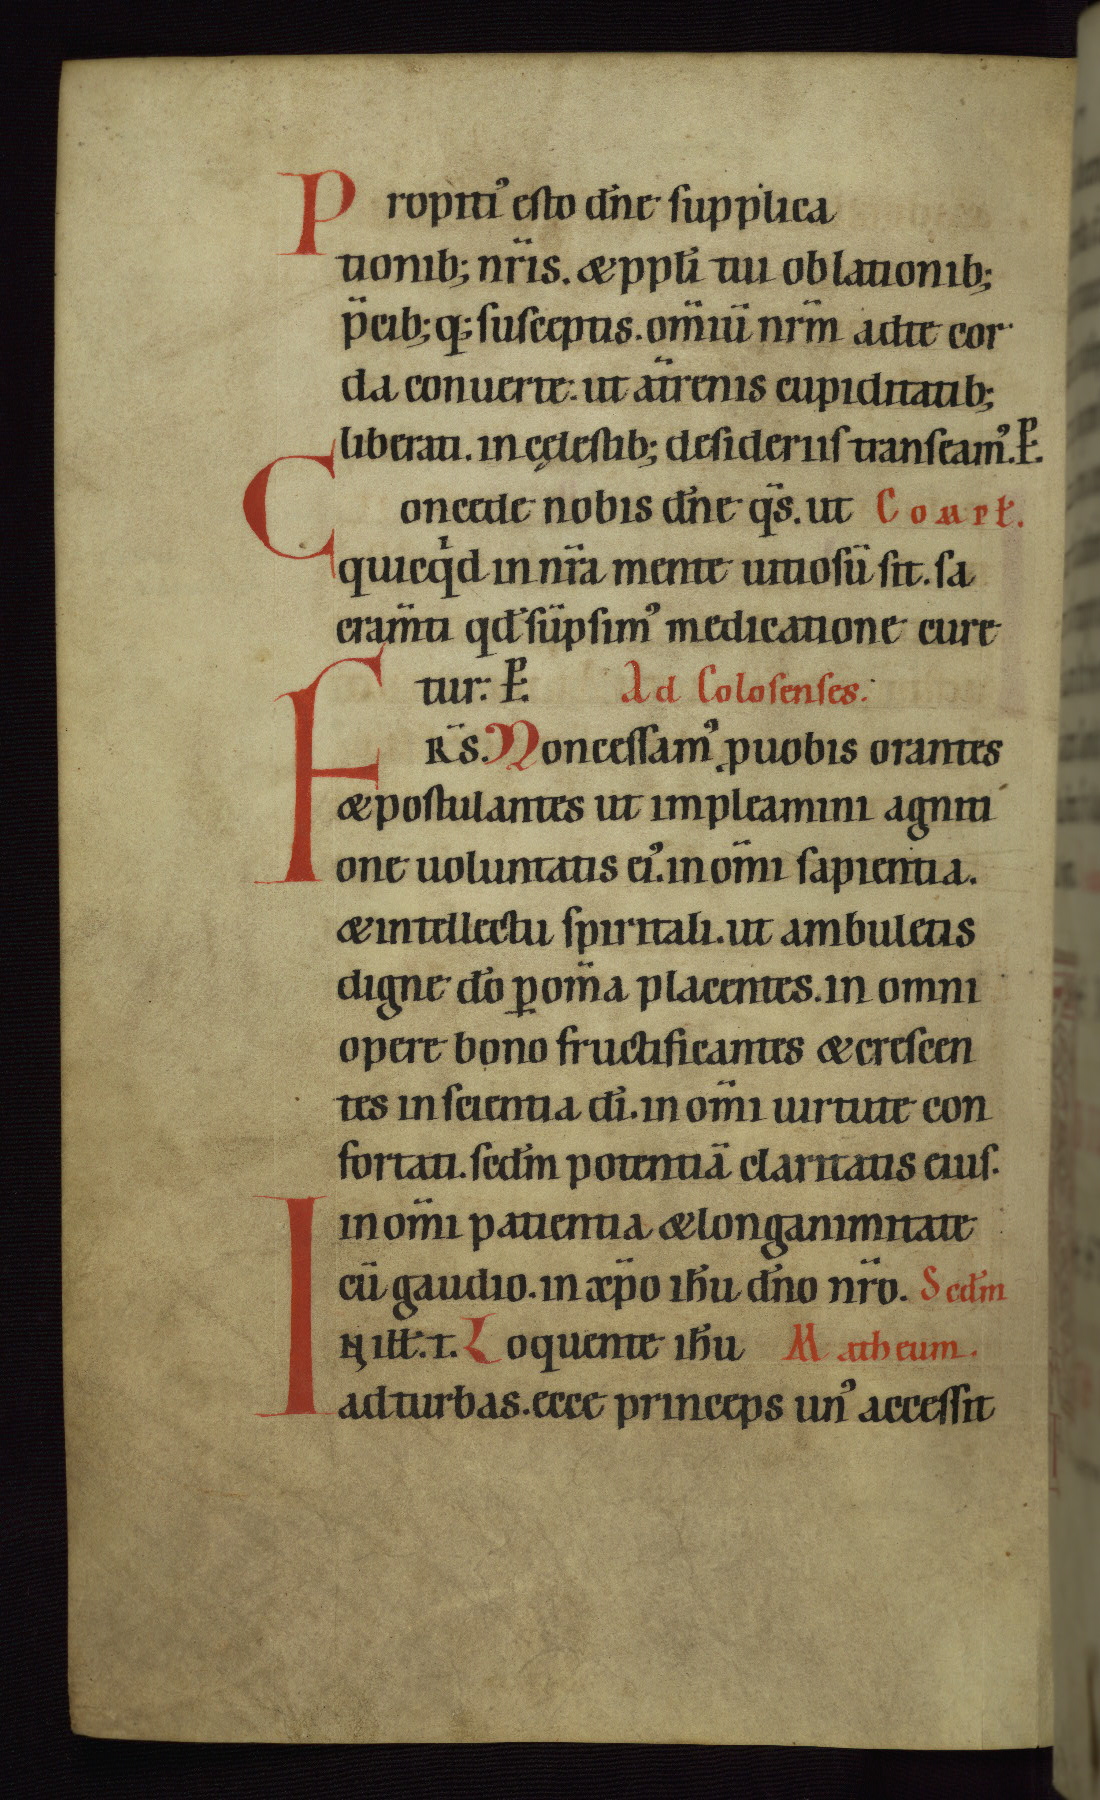 Propiti᾿ esto dn̄e supplica
tionib; nr̄is. & ppl̄i tui oblationib;
p̄cib; q; susceptis. om̄iū nr̄m ad te cor
da conuerte: ut a tr̄enis cupiditatib;
liberati. in cęlestib; desideriis transeam᾿. P̄.
Concede nobis dn̄e q̄s. ut Compl̄.
quicqͥd in nr̄a mente uitiosū sit. sa
cram̄ti qd̄ sūpsim᾿ medicatione cure
tur: P̄. Ad Colosenses.
FR̄S. Non cessam᾿ ꝓ uobis orantes
& postulantes ut impleamini agniti
one uoluntatis ei᾿. in om̄i sapientia.
& intellectu spiritali. ut ambuletis
digne dō ꝑ om̄a placentes. in omni
opere bono fructificantes & crescen
tes in scientia dī. in om̄i uirtute con
fortati. scdm̄ potentiā claritatis eius.
in om̄i patientia & longanimitate
cū gaudio. in xp̄o ih̄u dn̄o nr̄o. Scdm̄
IN ill̄. t. Loquente ih̄u Matheum.
ad turbas. ecce princeps un᾿ accessit